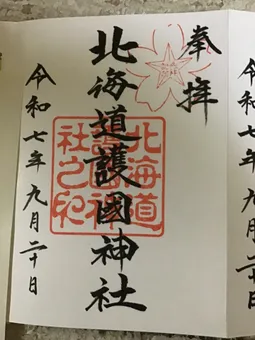 奉拝
北海道護國神社
北海道護國神社之印
令和七年九月二十日
令和七年九月二十日